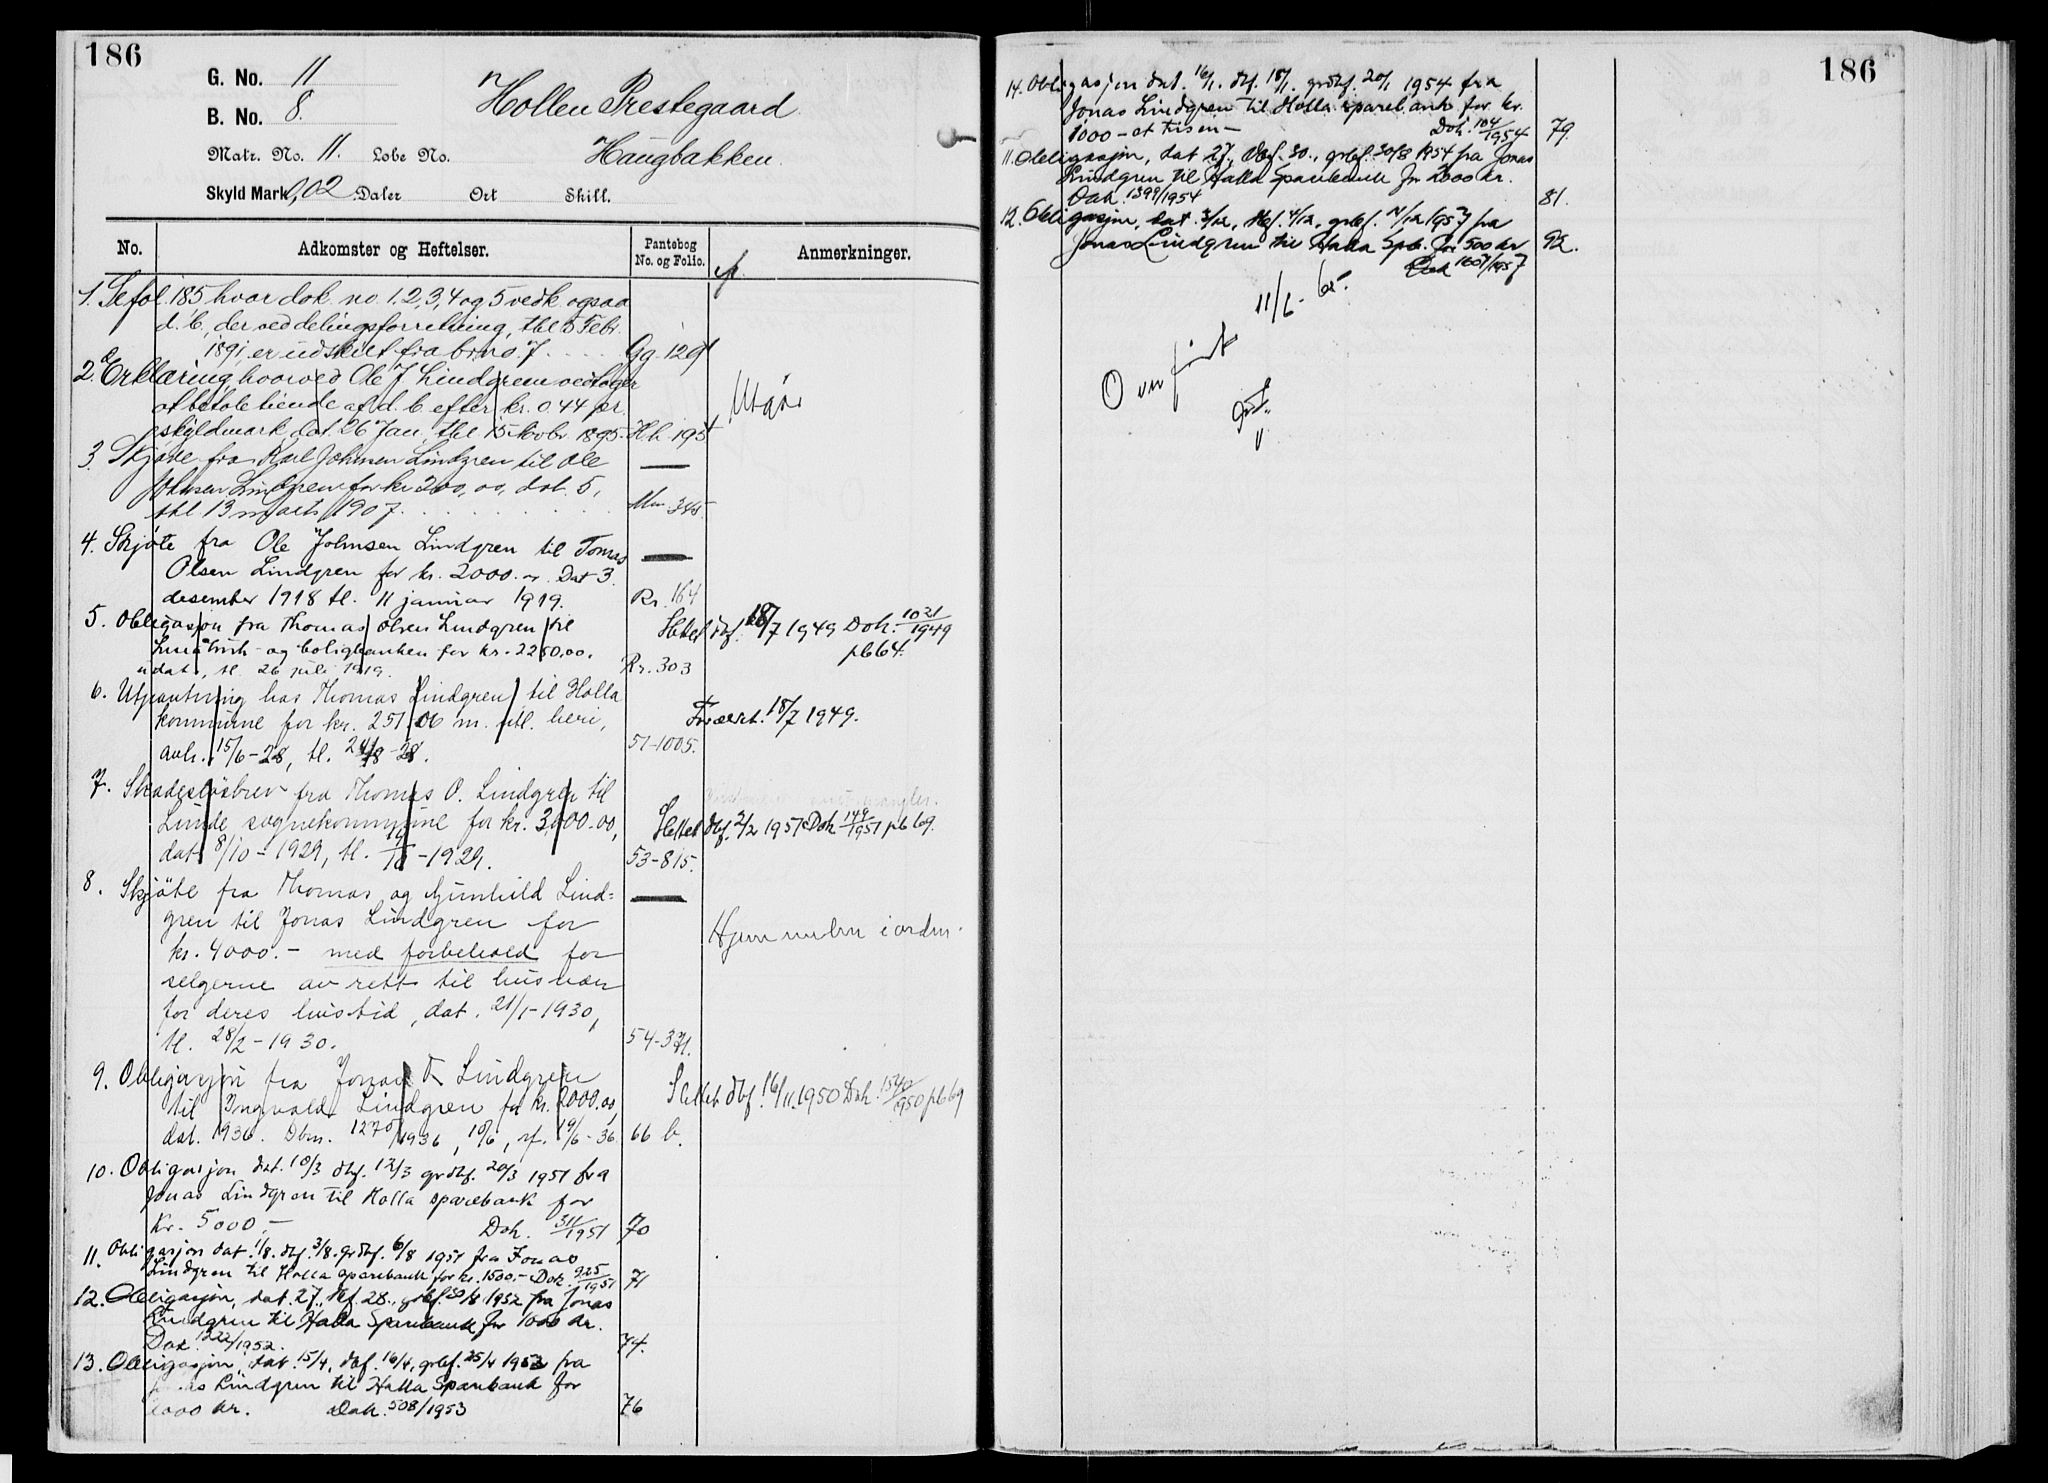 186
G. No. 11
B. No. 8.
Matr. No. 11. Løbe No.
Skyld Mark 0,02 Daler Ort Skill.
Hollen Prestegaard
Haugbakken.
No. Adkomster og Heftelser. Pantebog No. og Folio. Anmerkninger.
1. Se fol. 185 hvor dok. no. 1, 2, 3, 4 og 5 vedk. ogsaa
d. b., der ved delingsforretning, thl. 5 Febr.
1891 er udskilt fra br.no. 7 . . . . Gg. 129
2. Erklæring, hvorved Ole J. Lindgren vedtager
at betale tiende af d. b. efter kr. 0.44 pr.
skyldmark, dat. 26 Jan., thl. 15 Novbr. 1895. Hh. 195
Utgår
3. Skjøde fra Karl Johnsen Lindgren til Ole
Johnsen Lindgren for kr 200,00, dat. 5,
thl. 13 marts 1907. . . . . . . Mm. 345.
4. Skjøte fra Ole Johnsen Lindgren til Tomas
Olsen Lindgren for kr. 2000.00. Dat 3.
desember 1918 tl. 11 januar 1919. Rr. 164
5. Obligasjon fra Thomas Olsen Lindgren til
Småbruk- og boligbanken for kr. 2250,00.
udat., tl. 26 juli 1919. Rr. 303
Slettet dbf. 18/7 1949 Dok. 1021/1949
pb 64.
6. Utpantning hos Thomas Lindgren til Holla
kommune for kr. 251.06 m. utl. heri,
avh. 15/6-28, tl. 24/8-28. 51-1005.
Foreldet. 18/7 1949.
7. Skadesløsbrev fra Thomas O. Lindgren til
Lunde sognekommune for kr. 3,000.00,
dat. 8/10-1929, tl. /10-1929. 53-815.
Slettet dbf. 2/2 1951 Dok. 149/1951 pb 69.
8. Skjøte fra Thomas og Gunhild Lind-
gren til Jonas Lindgren for
kr. 4000.- med forbehold for
selgerne av rett til husvær
for deres livstid, dat. 21/1-1930,
tl. 28/2-1930. 54-371.
Hjemmelen i orden.
9. Obligasjon fra Jonas T. Lindgren
til Yngvald Lindgren for kr. 2000.00,
dat. 1936. Dbnr. 1270/1936, 10/6, rf. 19/6-36. 66 b.
Slettet dbf. 16/11.1950 Dok. 1540/1950 pb 69
10. Obligasjon dat. 10/3 dbf. 12/3 grdbf. 20/3 1951 fra
Jonas Lindgren til Holla sparebank for
Kr. 5000,- Dok. 311/1951 70
11. Obligasjon dat. 1/8. dbf. 3/8. grdbf. 6/8 1951 fra Jonas
Lindgren til Holla sparebank for kr. 1500.- Dok. 925/1951 71
12. Obligasjon, dat. 27., dbf. 28., grbf. 30/8 1952 fra Jonas
Lindgren til Holla Sparebank for 1000 kr.
Dok. 1222/1952. 74.
13. Obligasjon, dat. 15/4, dbf. 16/4, grbf. 25/4 1953 fra
Jonas Lindgren til Holla Sparebank for
1000 kr. Dok. 508/1953 76
186
14. Obligasjon dat. 16/1. dbf. 18/1. grdbf. 20/1 1954 fra
Jonas Lindgren til Holla sparebank for kr.
1000 - et tusen - Dok. 104/1954 79.
11. Obligasjon, dat 27., dbf. 30., grbf. 30/8 1954 fra Jonas
Lindgren til Holla Sparebank for 2000 kr.
Dok. 1399/1954 81.
12. Obligasjon, dat. 3/12, dbf. 4/12, grbf. 14/12 1957 fra
Jonas Lindgren til Holla Spb. for 500 kr 92.
Dok 1607/1957
Overført 11/6-65.